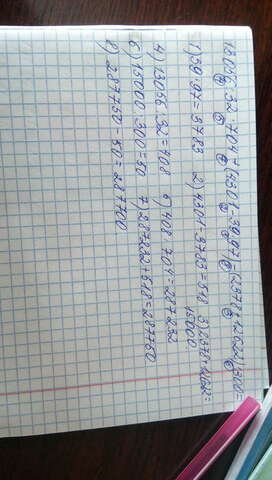 13056:32·704+(4301-39·97)-(2378+12622):300=
1) 39·97=3783 2) 4301-3783=518 3) 2378+12622=
15000
4) 13056:32=408 5) 408·704=287232
6) 15000:300=50 7) 287232+518=287750
8) 287750-50=287700